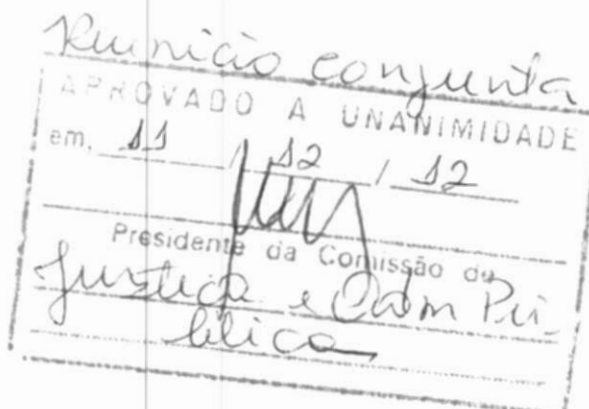 Reunião conjunta
APROVADO A UNANIMIDADE
em, 11 / 12 / 12
Presidente da Comissão de
Justiça e Adm Pú-
blica